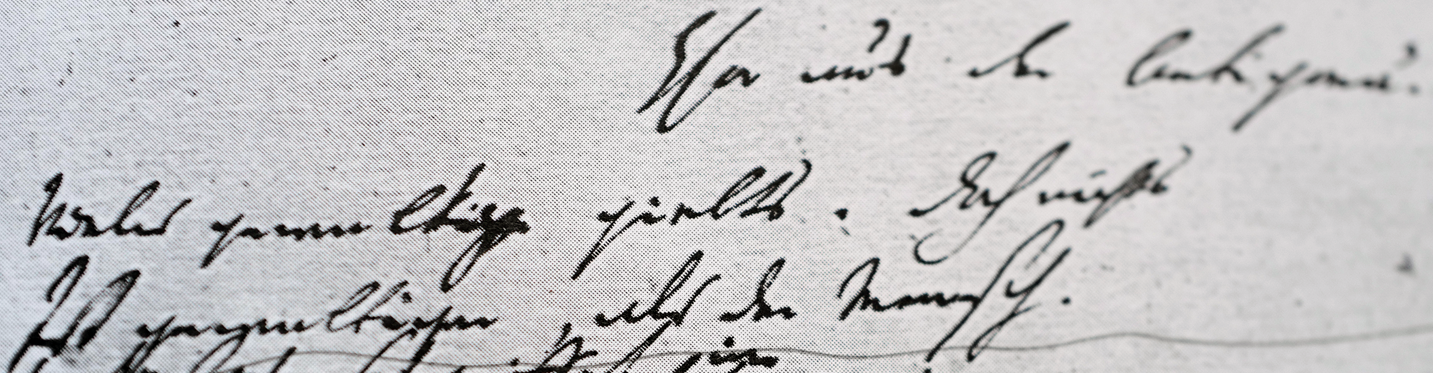 Chor aus der Antigonä.
Vieles gewaltge giebts. Doch nichts
Ist gewaltiger, als der Mensch.